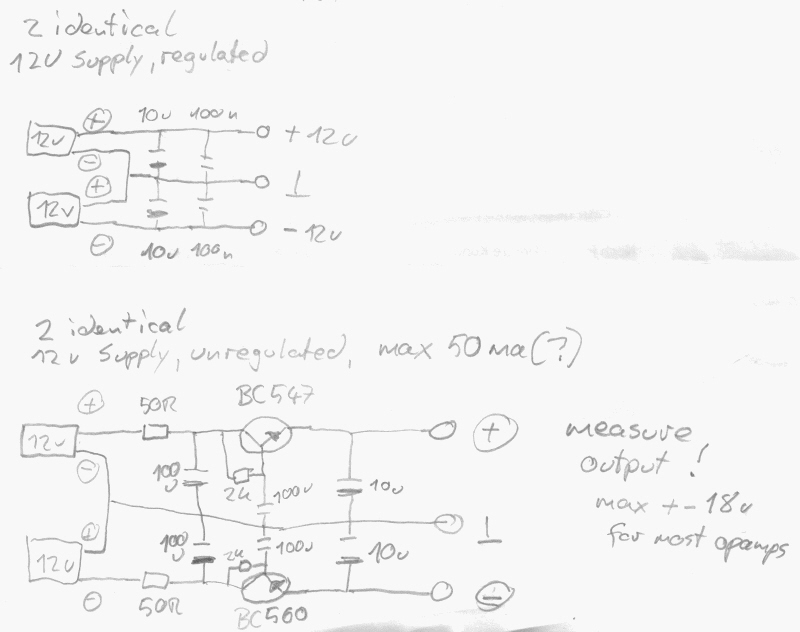 2 identical
12V Supply, regulated
+ 10u 100n
12v + 12v
-
+ ⊥
12v - 12v
- 10u 100n
2 identical
12v Supply, unregulated, max 50 ma(?)
BC547
+ 50R
12v +
- 100u 2k 100u 10u
measure
output!
max +- 18v
for most opamps
+ 100u 2k 100u 10u ⊥
12v
- 50R BC560 -